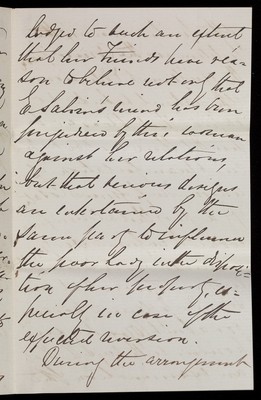 lodged to such an extent
that her Friends have rea-
son to believe not only that
E Salvin's mind has been
prejudiced by this woman
against her relations,
but that devious designs
are entertained by the
same party to influence
the poor lady in the disposi-
tion of her property, es-
pecially in case of the
expected reversion.
During the arrangement